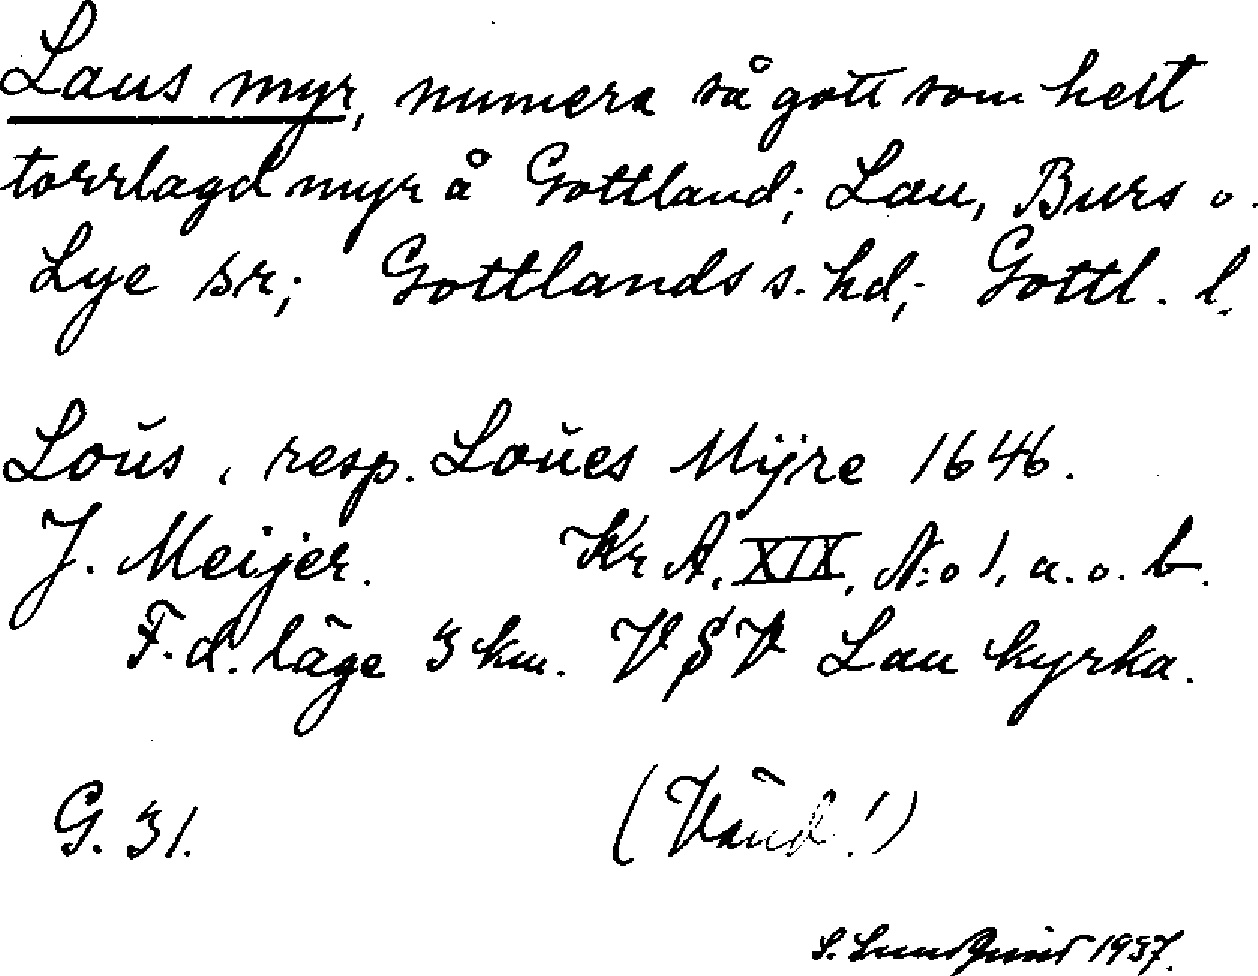 Laus myr, numera så gott som helt
torrlagd myr å Gottland; Lau, Burs o.
Lye sr; Gottlands s. hd; Gottl. l.
Loŭs, resp. Loŭes Mÿre 1646.
J. Meijer. Kr A, XIX, N:o 1, a. o. b.
F. d. läge 3 km. V S V Lau kyrka.
G. 31.
(Vänd!)
S. Lundquist 1937.